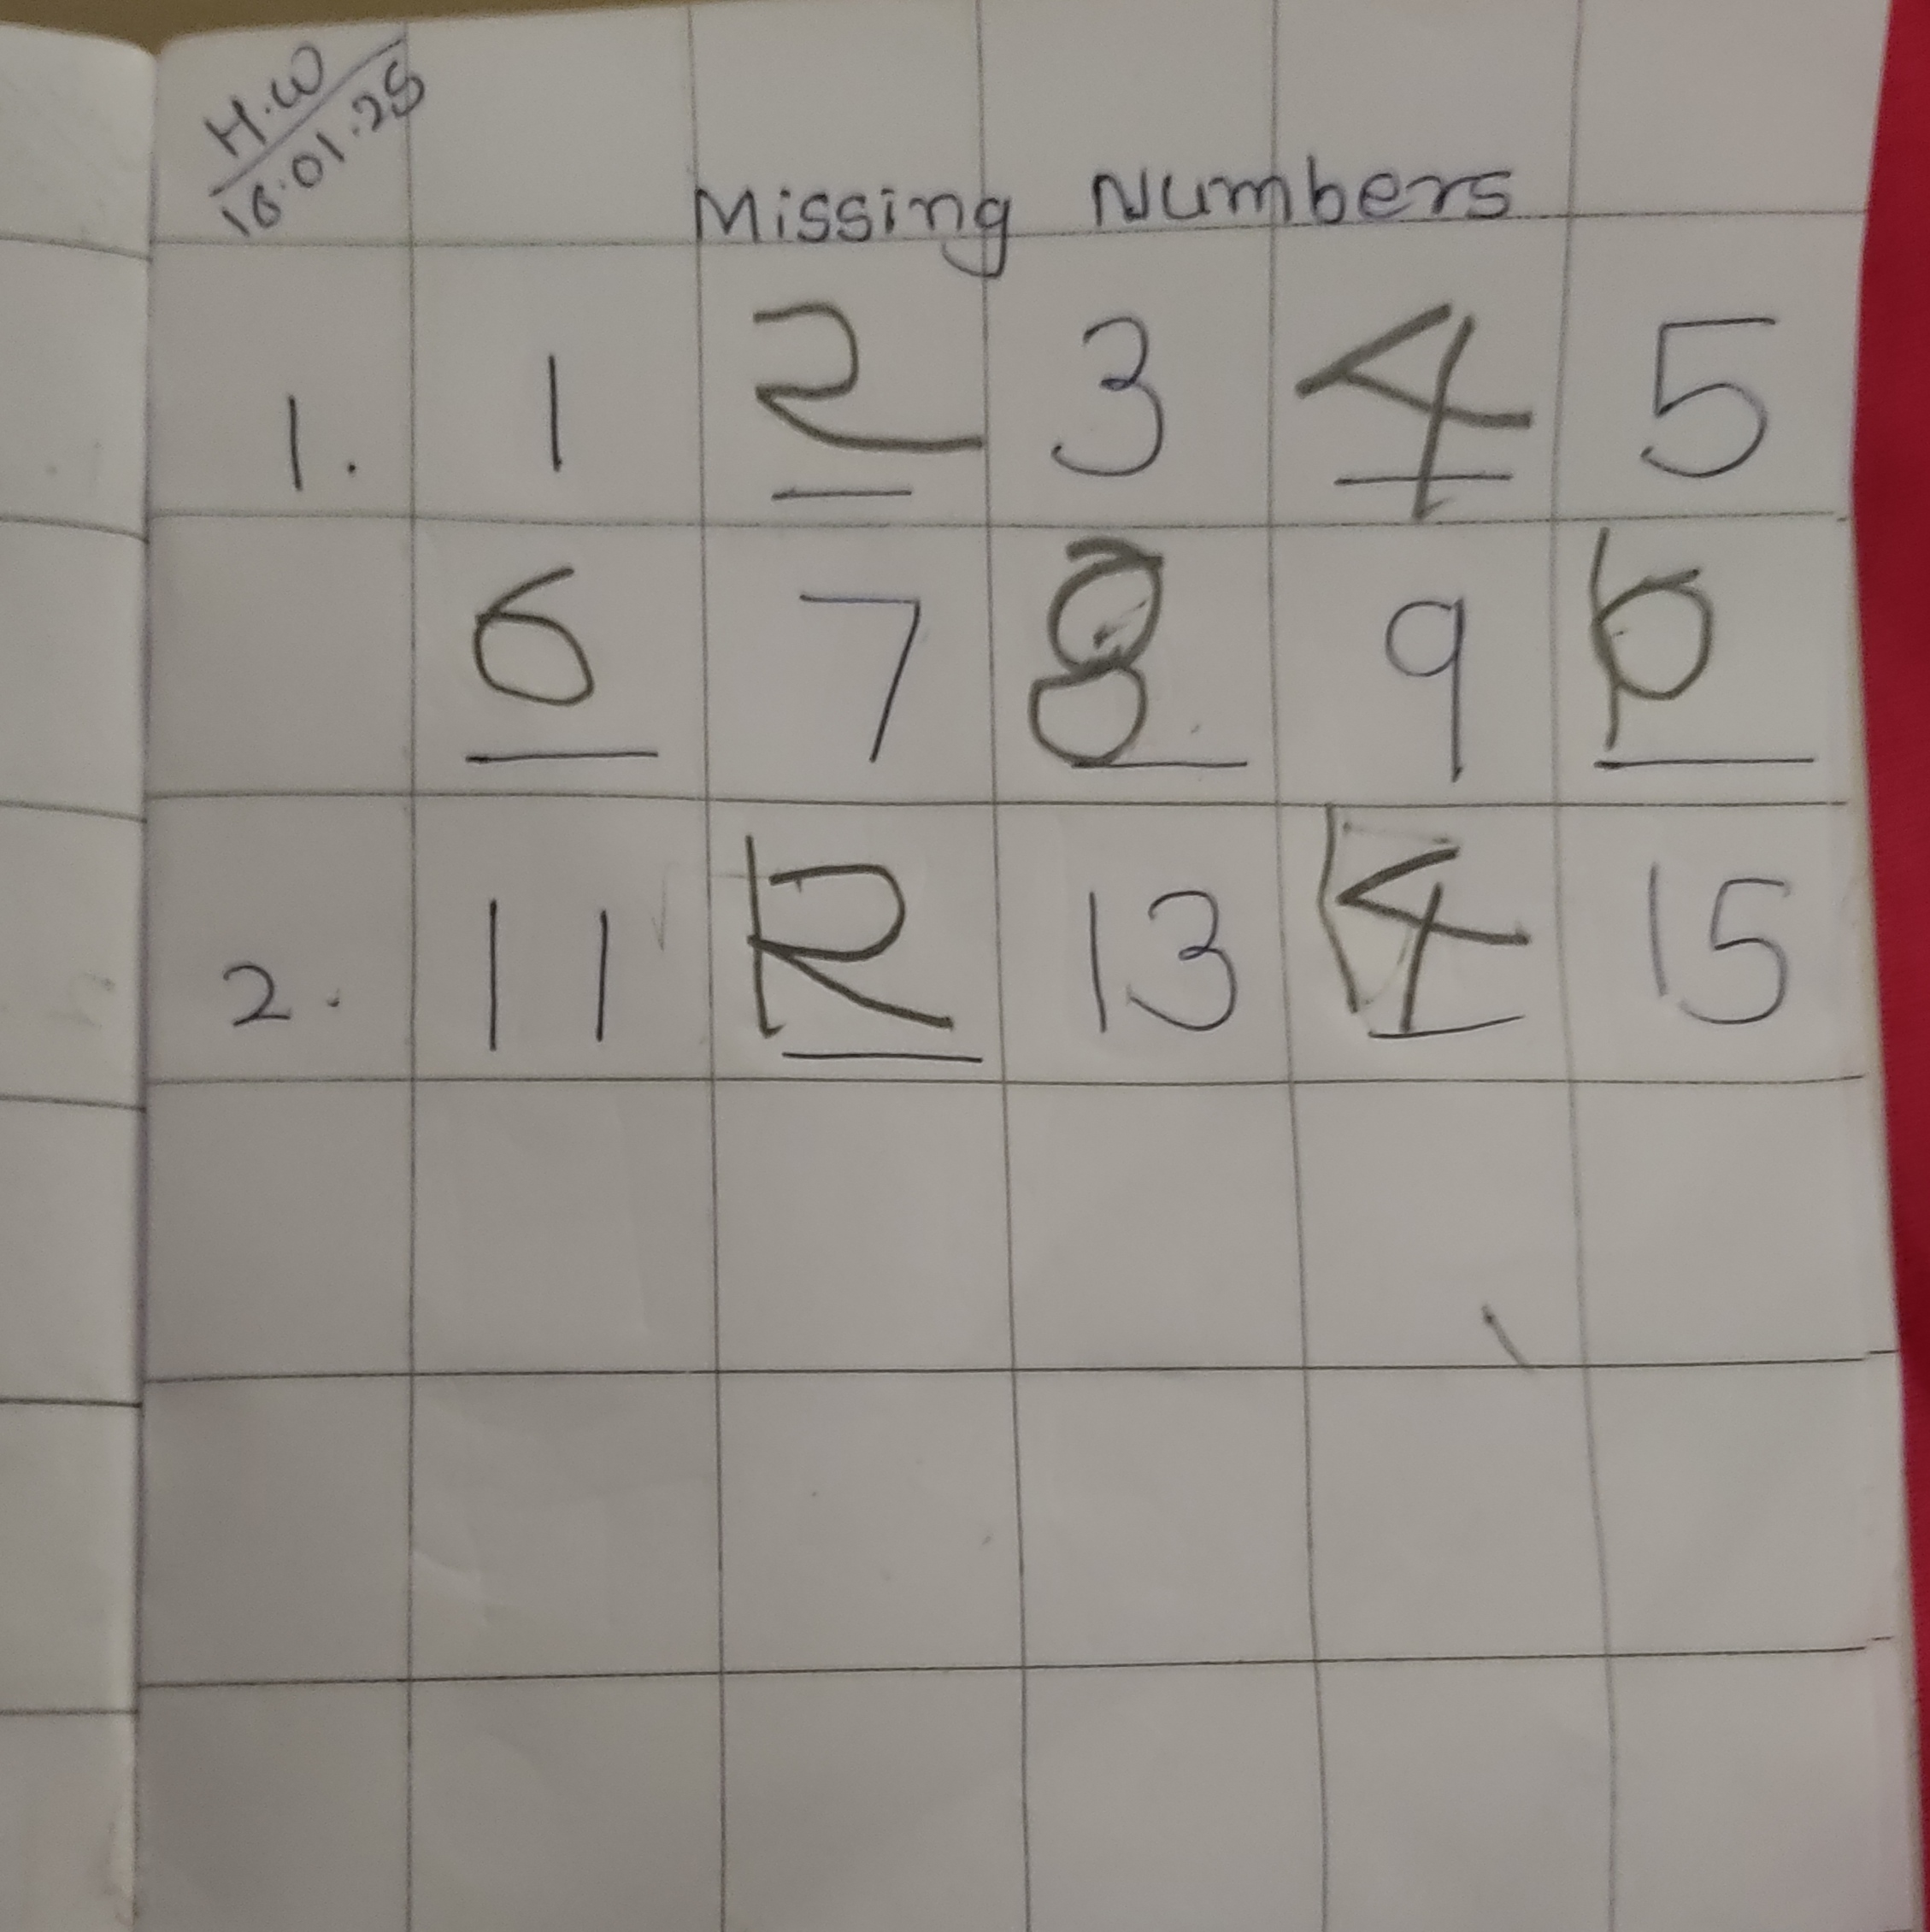 H.W
16.01.25
Missing Numbers
1. 1 2 3 4 5
6 7 8 9 10
2. 11 12 13 14 15